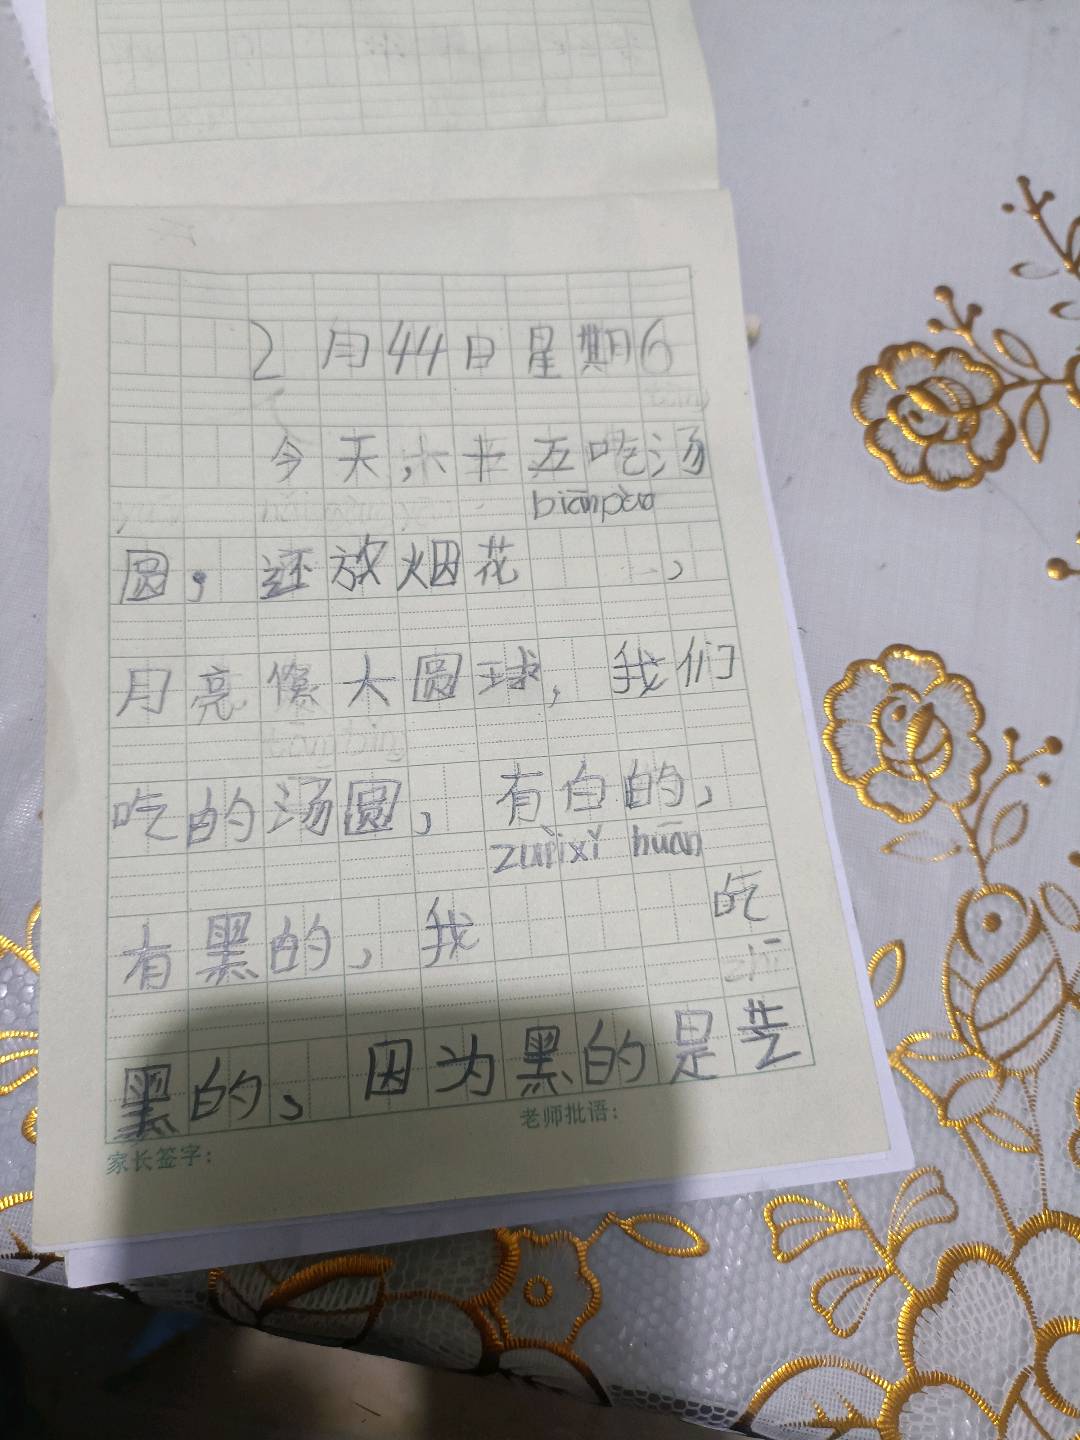 2月44日星期6
今天,大半五吃汤
biānpào
圆,还放烟花 ,
月亮像大圆球,我们
吃的汤圆,有白的,
zuìxǐ huān
有黑的,我 吃
黑的、因为黑的是芝
家长签字: 老师批语: